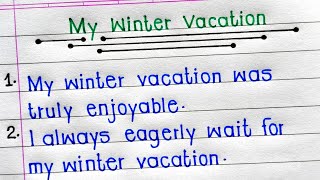 My Winter Vacation
1. My winter vacation was
truly enjoyable.
2. I always eagerly wait for
my winter vacation.